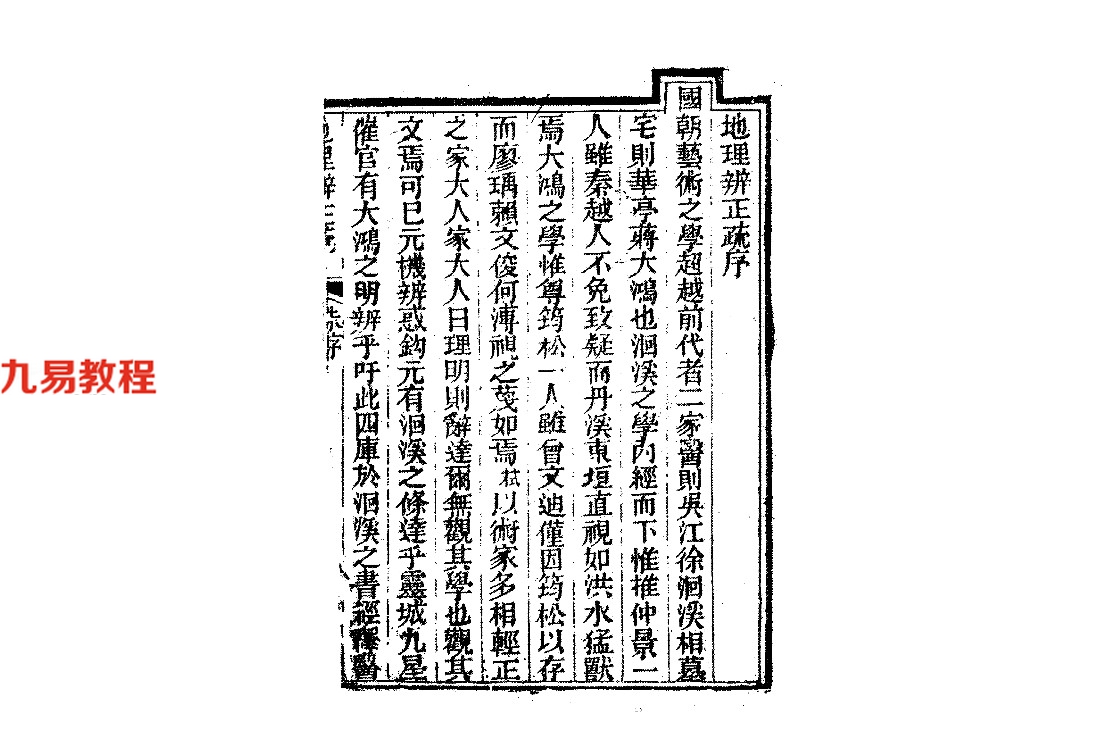 地理辨正疏序
國朝藝術之學超越前代者二家醫則吳江徐洄溪相墓
宅則華亭蔣大鴻也洄溪之學內經而下惟推仲景一
人雖秦越人不免致疑而丹溪東垣直視如洪水猛獸
焉大鴻之學惟尊筠松一人雖曾文迪僅因筠松以存
而廖瑀賴文俊何溥視之蔑如焉栻以術家多相輕正
之家大人家大人曰理明則辭達爾無觀其學也觀其
文焉可巳元機辨惑鈎元有洄溪之條達乎靈城九星
催官有大鴻之明辨乎吁此四庫於洄溪之書經釋醫
地理辨正疏
朱序
九易教程